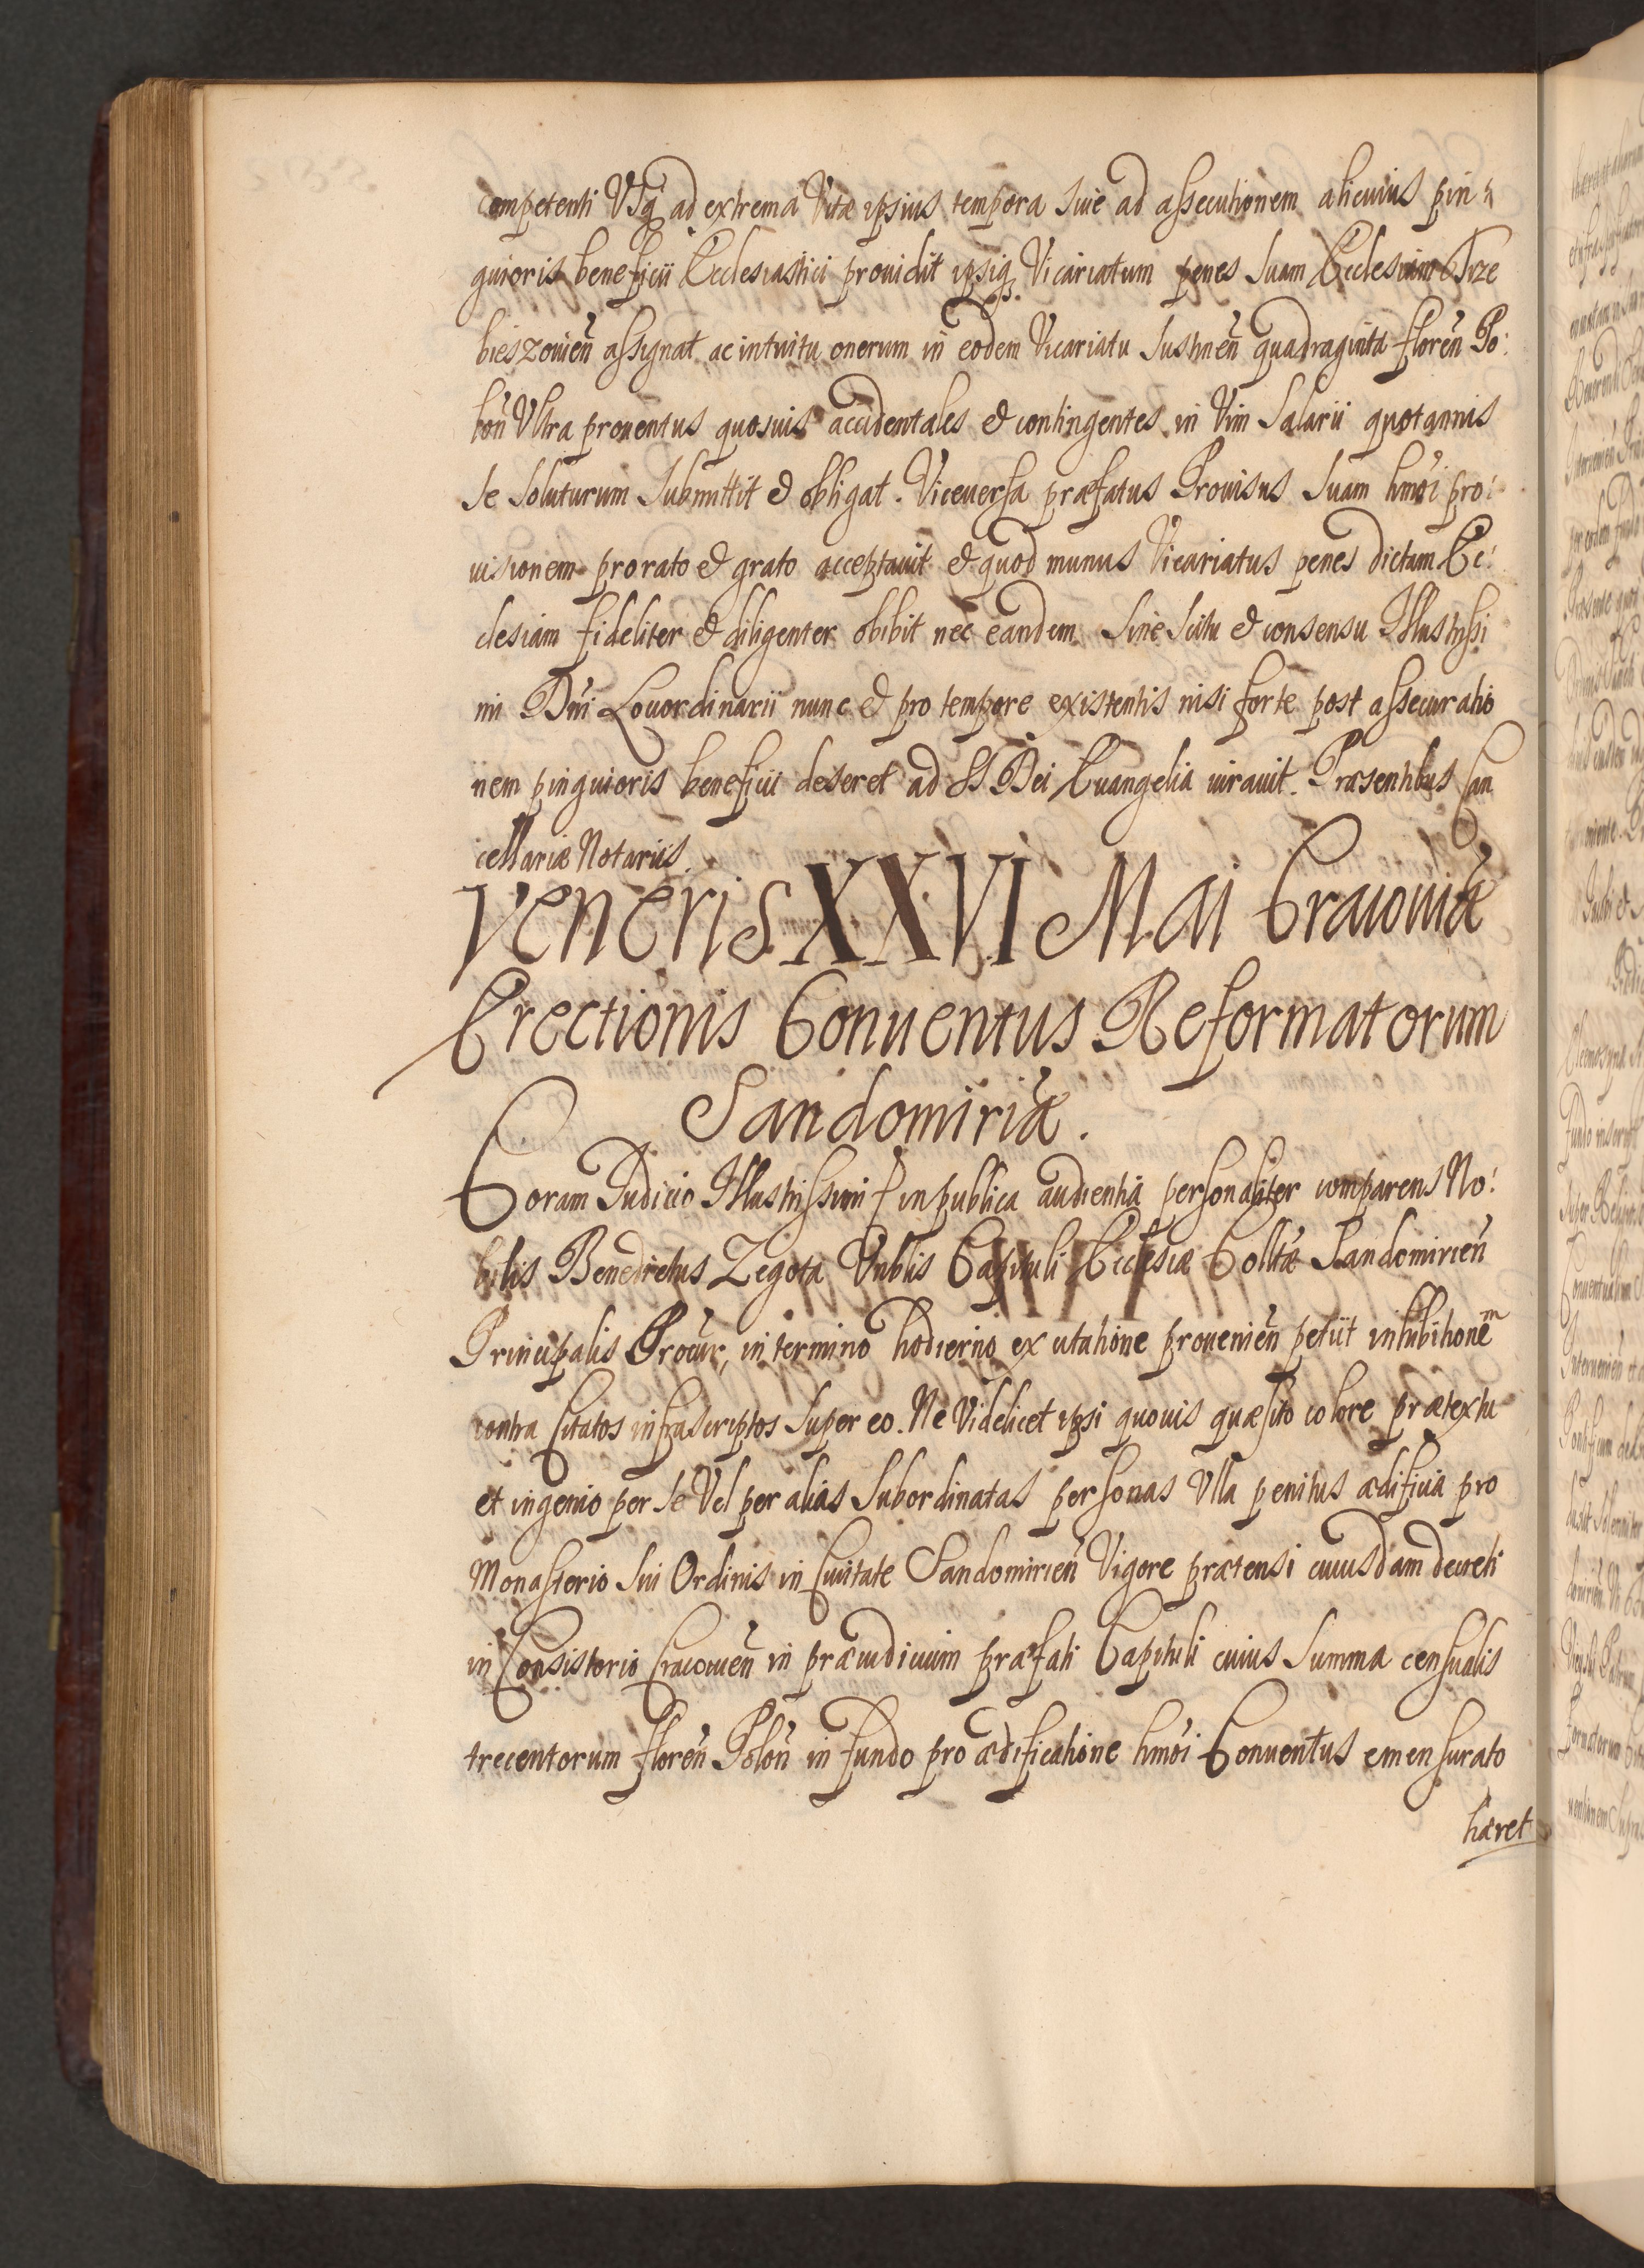 competenti Vsq ad extrema Vitæ ipsius tempora siue ad assecutionem alicuius pin
guioris beneficii Ecclesiastici prouidit ipsiq Vicariatum penes suam Ecclesiam Trze
bieszouien̄ assignat ac intuitu onerum in eodem Vicariatu sustinen̄ quadraginta floren̄ Po:
lon̄ Vltra prouentus quosuis accidentales et contingentes in Vim Salarii quotannis
se soluturum submittit et obligat. Viceuersa præfatus Prouisus suam hmōi pro:
uisionem pro rato et grato acceptauit et quod munus Vicariatus penes dictam Ec:
clesiam fideliter et diligenter obibit nec eandem sine scitu et consensu Illustrissi
mi Dn̄i Loci ordinarii nunc et pro tempore existentis nisi forte post assecuratio
nem pinguioris beneficii deseret ad SS Dei Euangelia iurauit. Præsentibus Can
cellariæ Notariis.
Veneris XXVI Mai Cracouiæ
Erectionis Conuentus Reformatorum
Sandomiriæ.
Coram Iudicio Illustrissimi in publica audientia personaliter comparens No:
bilis Benedictus Zegota Vnblis Capituli Ecclesiæ Colltæ Sandomirien̄
Principalis Procur, in termino hodierno ex citatione prouenien̄ petiit inhibitionem
contra Citatos infrascriptos super eo. Ne Videlicet ipsi quouis quæsito colore prætextu
et ingenio per se Vel per alias subordinatas personas Vlla penitus ædificia pro
Monasterio sui Ordinis in Ciuitate Sandomirien̄ Vigore prætensi cuiusdam decreti
in Consistorio Cracouien̄ in præiudicium præfati Capituli cuius summa censualis
trecentorum floren̄ Polon̄ in fundo pro ædificatione hmōi Conuentus emensurato
hæret